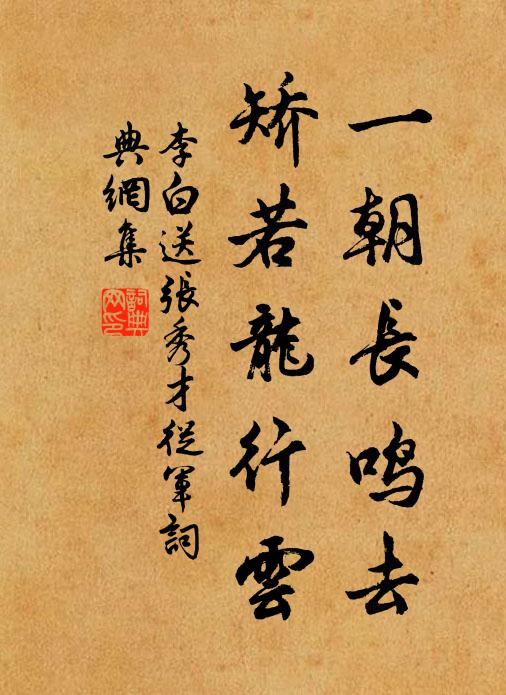 一朝長鸣去
矫若龍行雲
李白送張秀才從军詞
典網集
詞典网印